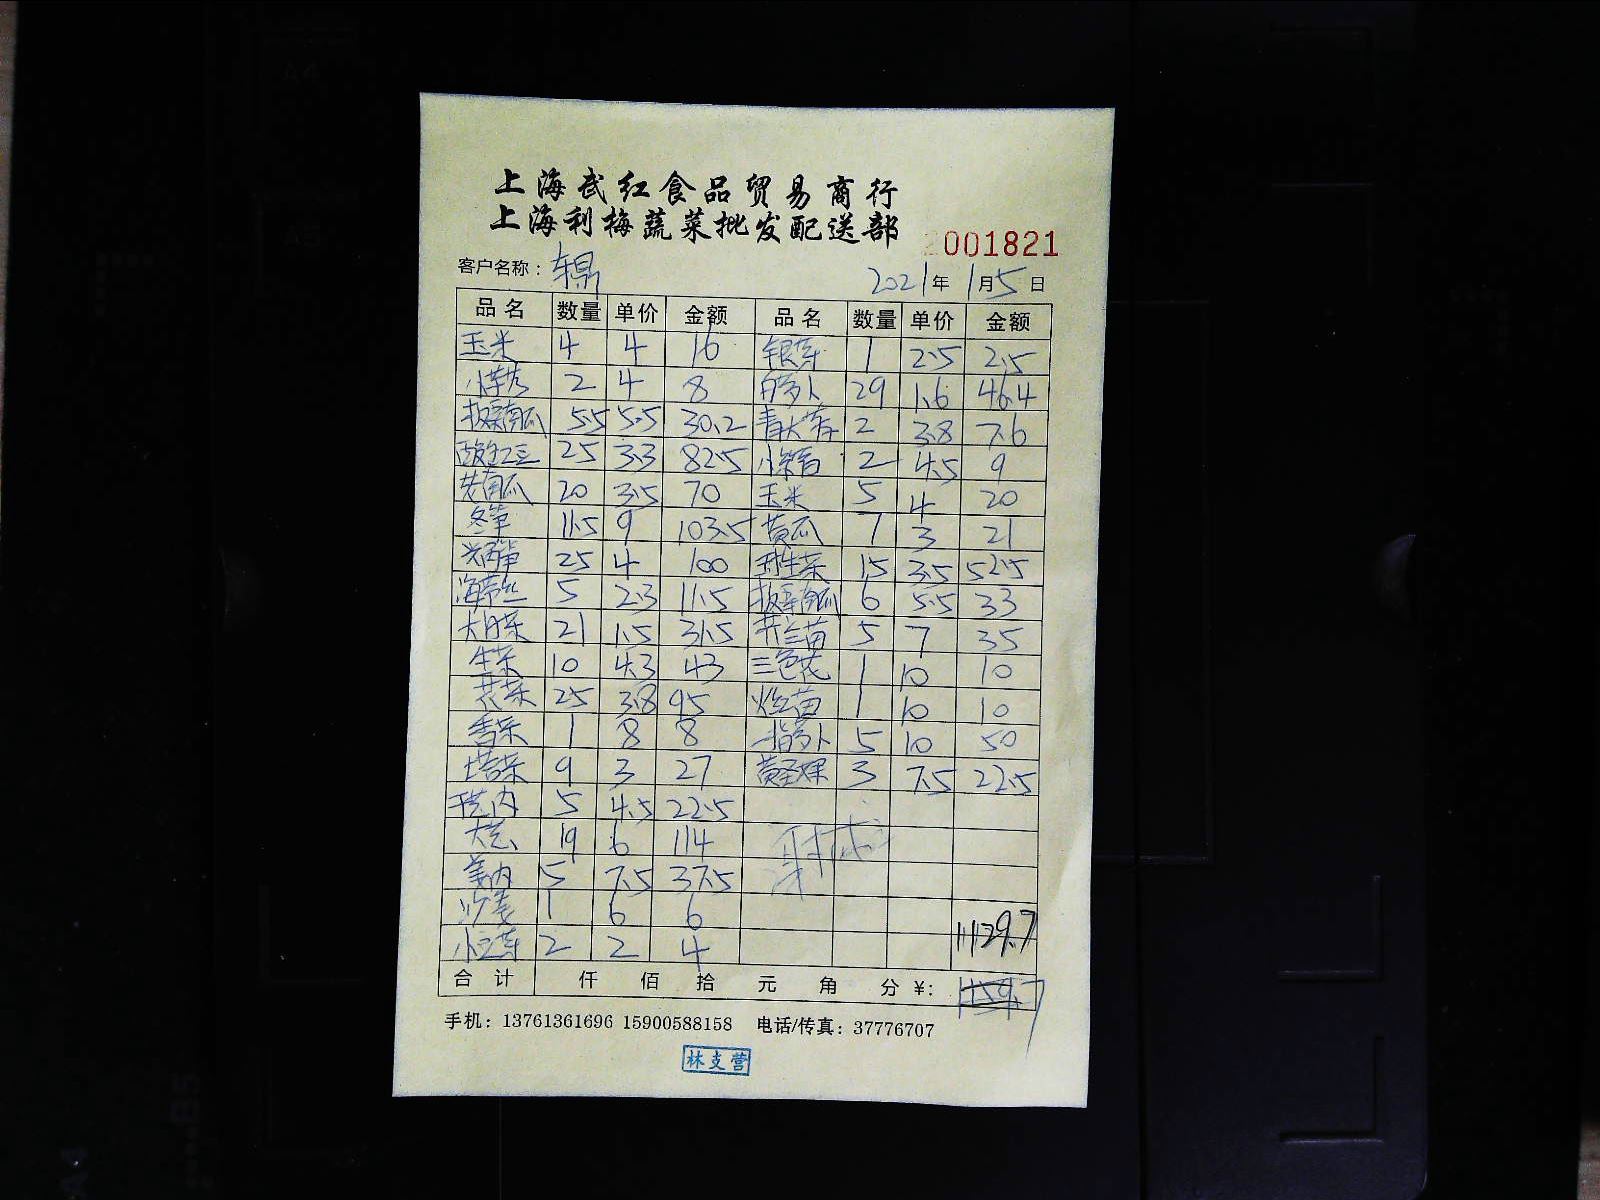 上海武红食品贸易商行
上海利梅蔬菜批发配送部
2001821
客户名称: 东鼎 2021年1月5日
品名 数量 单价 金额 品名 数量 单价 金额
玉米 4 4 16 银芽 1 2.5 2.5
2 4 8 白萝卜 29 1.6 46.4
板栗南瓜 5.5 5.5 30.2 青大 2 3.8 7.6
酸豇豆 25 3.3 82.5 2 4.5 9
老南瓜 20 3.5 70 玉米 5 4 20
冬笋 11.5 9 103.5 黄瓜 7 3 21
25 4 100 生菜 15 3.5 52.5
海带丝 5 2.3 11.5 板栗南瓜 6 5.5 33
大白菜 21 1.5 31.5 苗 5 7 35
生菜 10 4.3 43 三色花 1 10 10
花菜 25 3.8 95 苗 1 10 10
香菜 1 8 8 指萝卜 5 10 50
塔菜 9 3 27 黄圣果 3 7.5 22.5
5 4.5 22.5
大葱 19 6 114
姜肉 5 7.5 37.5
沙姜 1 6 6
小豆芽 2 2 4
1129.7
合计 仟 佰 拾 元 角 分 ¥: 1159.7
手机: 13761361696 15900588158 电话/传真: 37776707
林支营